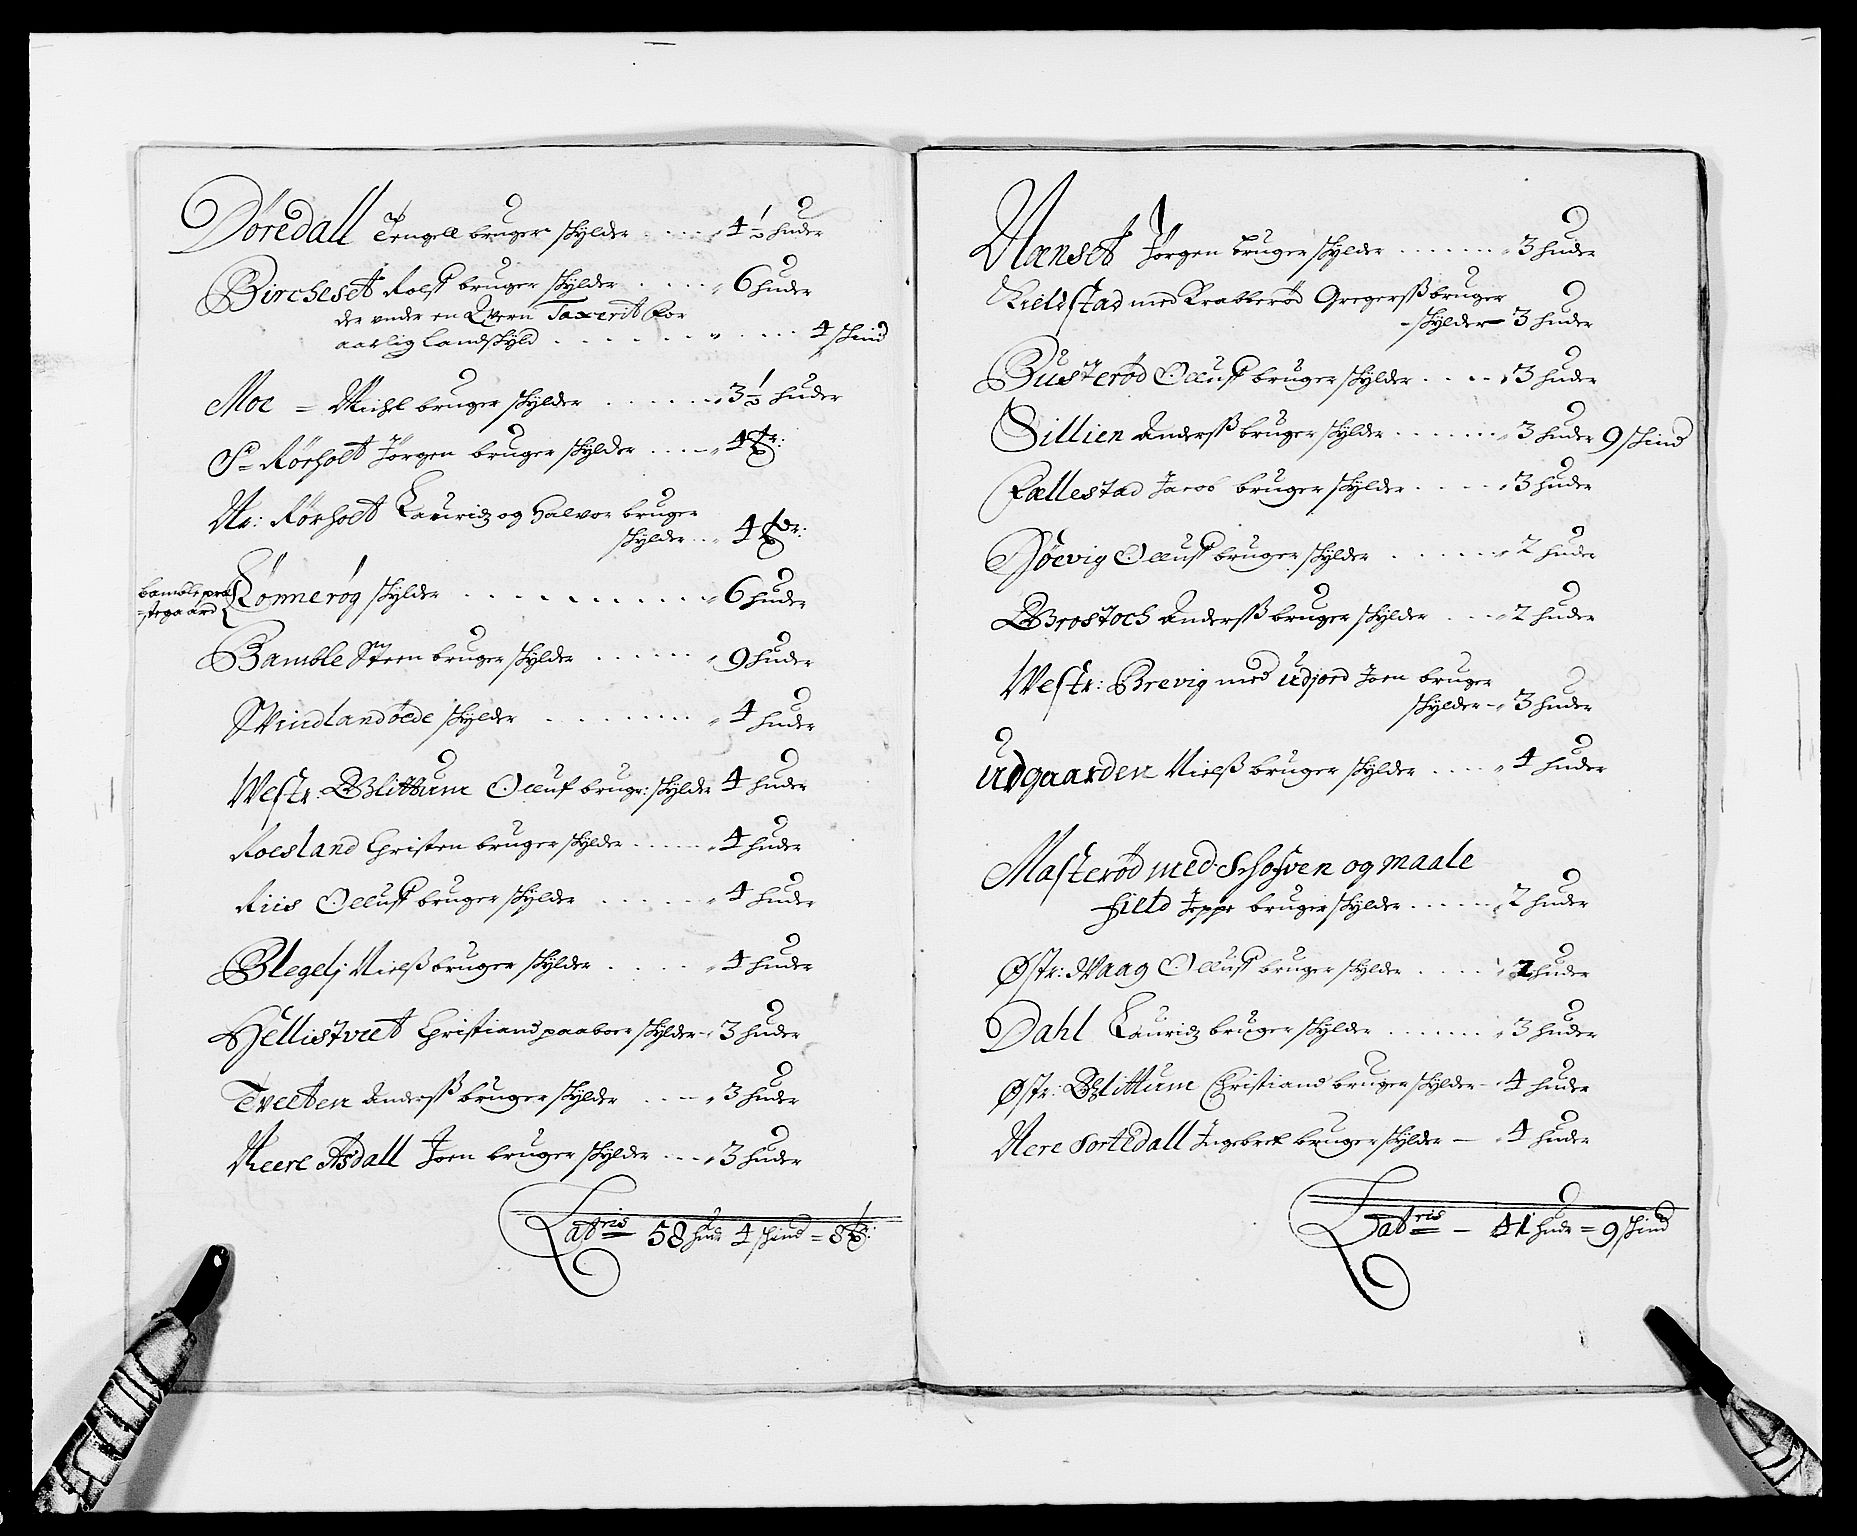 Döredall Tengell bruger skylder . . . . 4½ huder
Bircheset Rolff bruger skylder . . . . 6 huder
der under en Qvern Taxerit for
aarlig Landskyld . . . . . . . . . . 4 skind
Moe = Michl bruger skylder . . . . . . 3½ huder
Sr Rörholt Jörgen bruger skylder . . . . 4 tr:
Nr: Rörholt Lauridz og Halvor bruger
skylder . . 4 tr:
bamble præ
=stegaard
Rönnerög skylder . . . . . . . . . 6 huder
Bamble Steen bruger skylder . . . . . . 9 huder
Svindland öede skylder . . . . . . . . 4 huder
Westr: Blittum Olluf brugr: skylder 4 huder
Roesland Christen bruger skylder . . . . 4 huder
Riis Olluff bruger skylder . . . . . . 4 huder
Blegelj Nielß bruger skylder . . . . 4 huder
Hellistvet Christiand paaboer skylder - 3 huder
Tvelten Anderß bruger skylder . . . 3 huder
Neere Asdall Joen bruger skylder . . . 3 huder
Latris 58 hudr 4 skind = 8 tr:
Nænset Jörgen bruger skylder . . . . . 3 huder
Kieldstad med Krabberöd Gregerß bruger
skylder - 3 huder
Busteröd Olluff bruger skylder . . . . 3 huder
Sillien Anderß bruger skylder . . . . . 3 huder 9 skind
Fællestad Jacob bruger skylder . . . . 3 huder
Döevig Olluff bruger skylder . . . . . 2 huder
Brostoch Anderß bruger skylder . . . 2 huder
Westr: Brevig med Udjord Joen bruger
skylder - 3 huder
Udgaarden Nielß bruger skylder . . . . 4 huder
Masteröd med Schofven og maale
field Jeppe bruger skylder . . . . . 2 huder
Østr: Waag Olluff bruger skylder . . . . 2 huder
Dahl Lauridz bruger skylder . . . . . . 3 huder
Østr: Blittum Christiand bruger skylder - 4 huder
Nere Sortedall Ingebret bruger skylder - 4 huder
Latris - 41 hudr = 9 skind